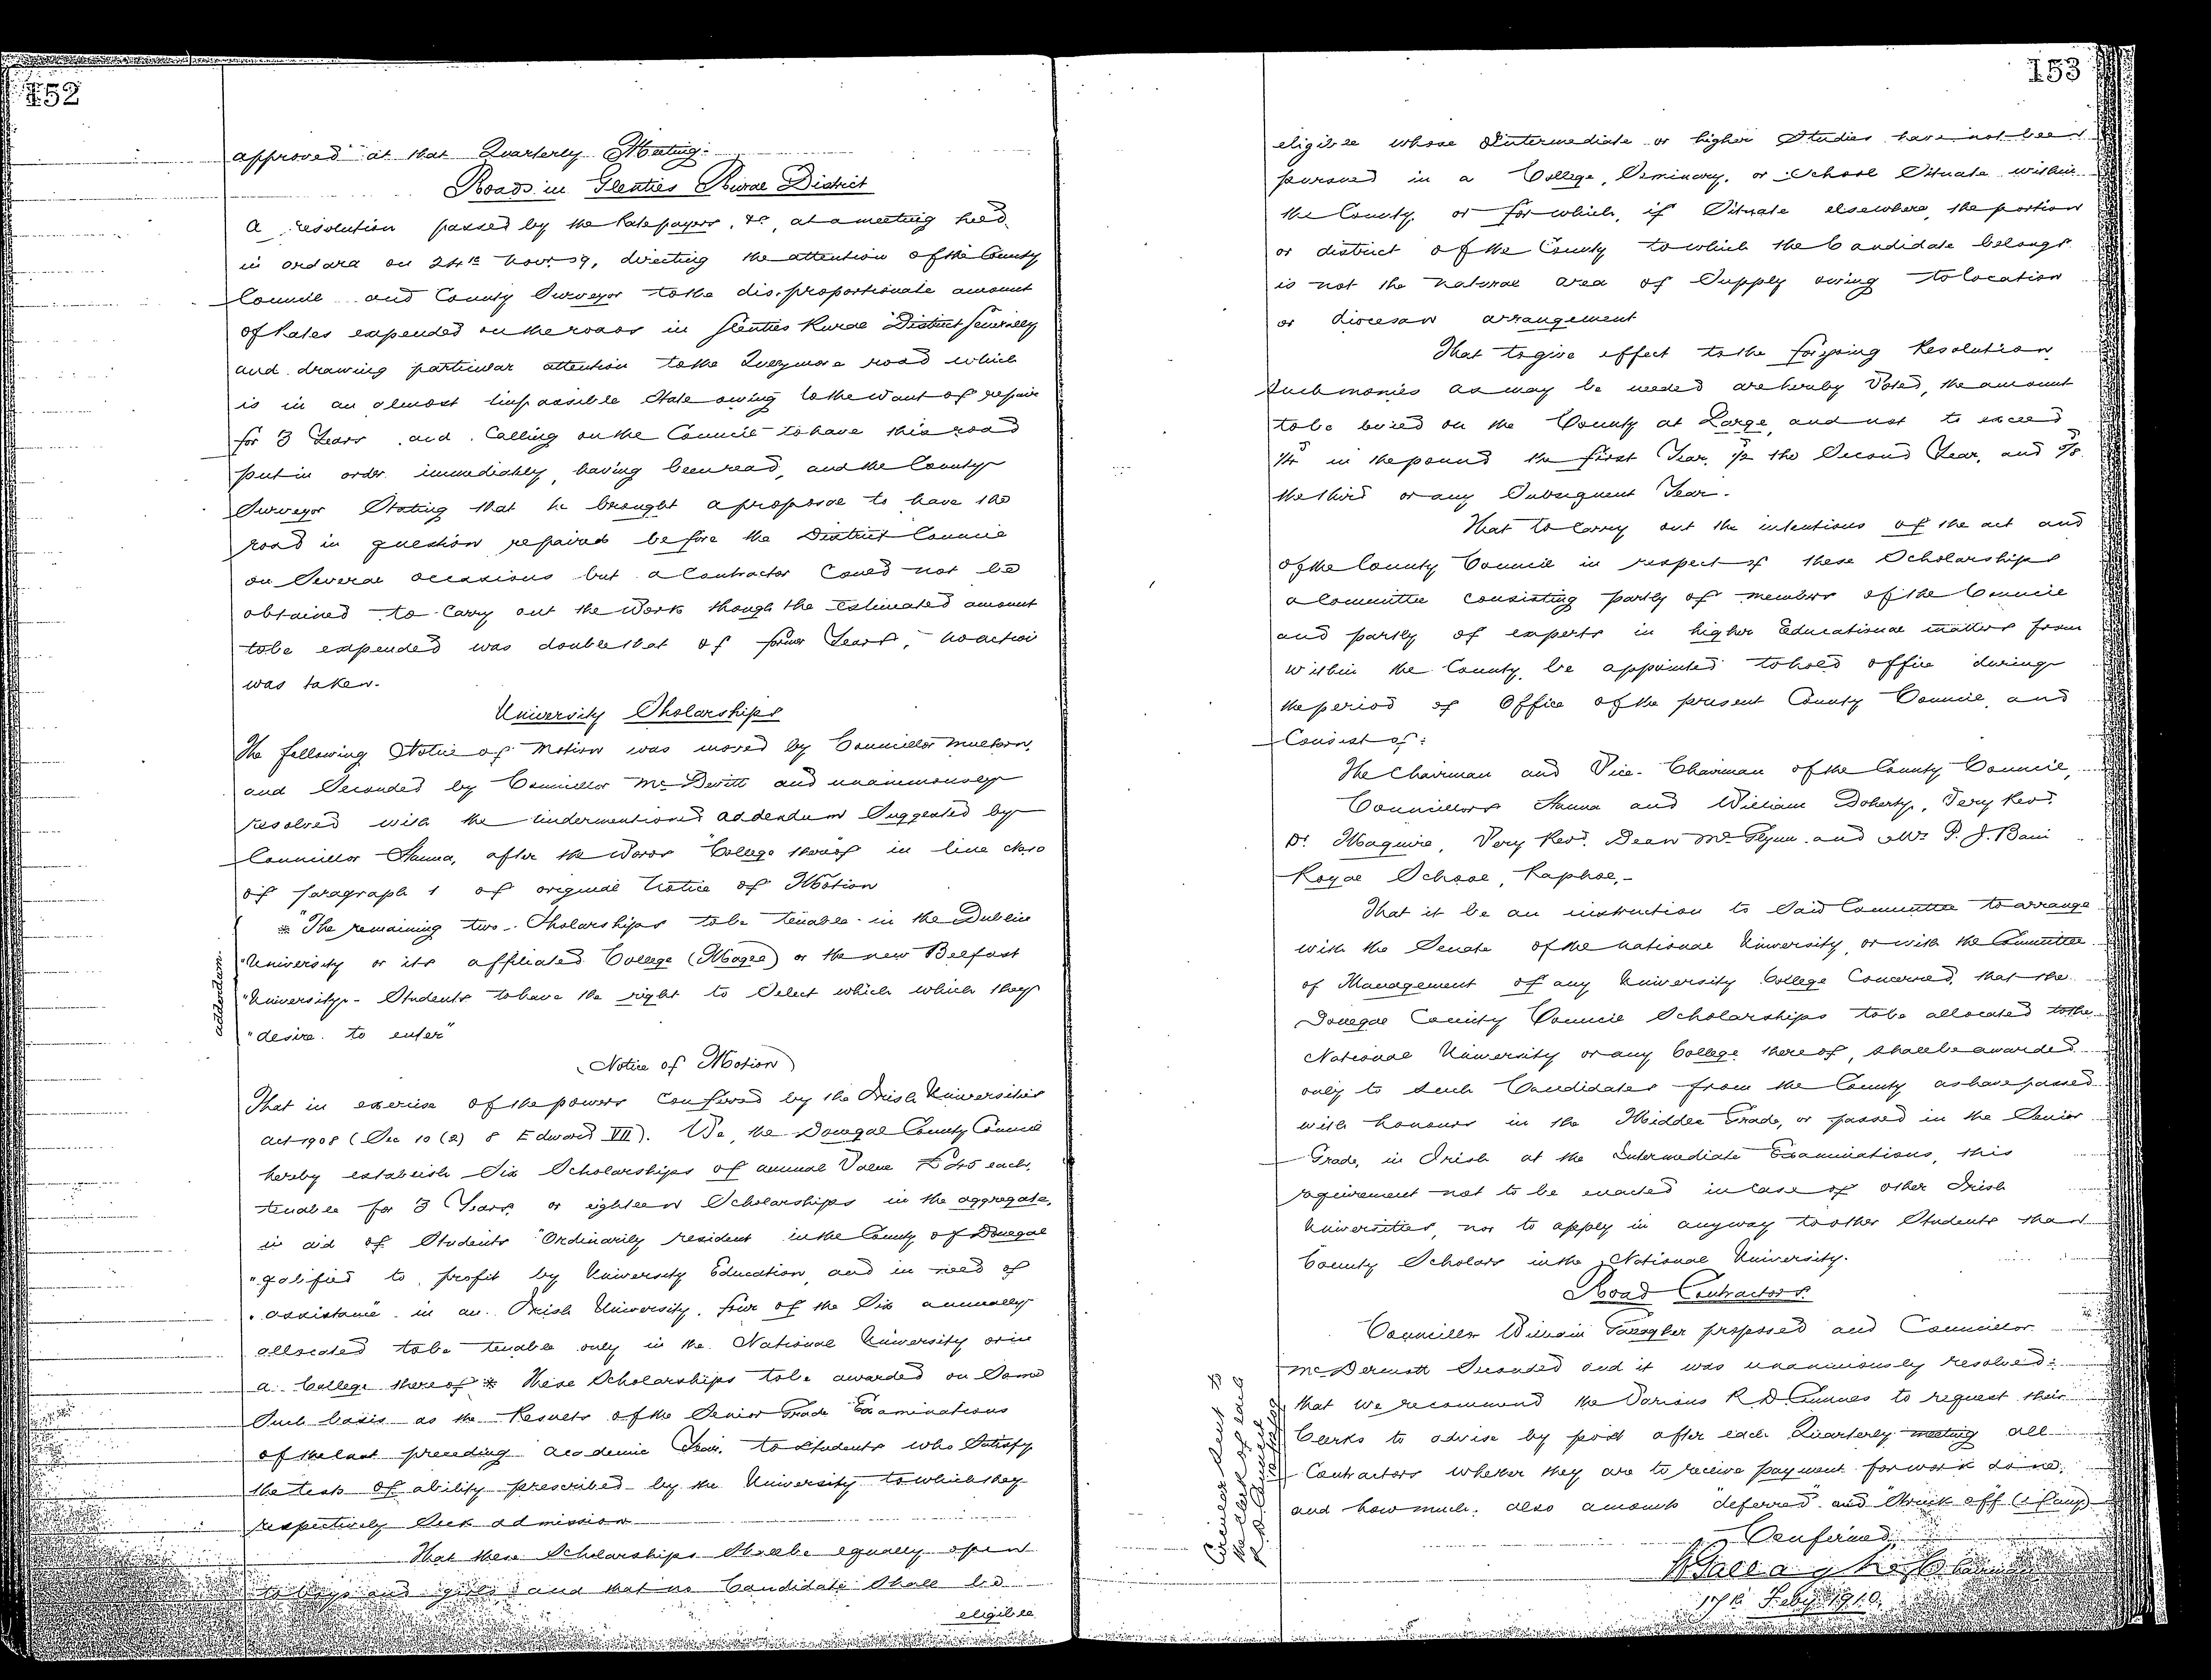 152
approved at that Quarterly Meeting.
Roads in Glenties Rural District
A resolution passed by the Ratepayers, &c, at a meeting held
in Ardara on 24th Novr. 09, directing the attention of the County
Council and County Surveyor to the dis-proportionate amount
of Rates expended on the roads in Glenties Rural District generally
and drawing particular attention to the road which
is in an almost impassible State owing to the want of repair
for 3 Years and Calling on the Council to have this road
put in order immediately, having been read, and the County
Surveyor Stating that he brought a proposal to have the
road in question repaired before the District Council
on Several occasions but a Contractor Could not be
obtained to Carry out the Work though the estimated amount
to be expended was double that of former Years, no action
was taken.
University Sholarships
The following Notice of Motion was moved by Councillor
and Seconded by Councillor McDevitt and unanimously
resolved with the undermentioned addendum Suggested by
Councillor Hanna, after the Words "College thereof" in line
of paragraph 1 of original Notice of Motion
addendum.
* "The remaining two Sholarships to be tenable in the Dublin
"University or its affiliated College (Magee) or the new Belfast
"University - Students to have the right to Select which which they
"desire to enter"
(Notice of Motion)
That in exercise of the powers Conferred by the Irish Universities
Act 1908 (Sec 10 (2) 8 Edward VII). We, the Donegal County Council
hereby establish Six Scholarships of annual Value £45 each,
tenable for 3 Years, or eighteen Scholarships in the aggregate,
in aid of Students "Ordinarily resident in the County of Donegal
"qalified to profit by University Education, and in need of
"assistance" in an Irish University, four of the Six annually
allocated to be tenable only in the National University or in
a College thereof * these Scholarships to be awarded on Some
Such basis as the Results of the Senior Grade Examinations
of the last preceding academic Year, to Students who Satisfy
the tests of ability prescribed by the University to which they
respectively Seek admission
That these Scholarships Shall be equally open
to boys and girls and that no Candidate Shall be
eligible
153
eligible whose Intermediate or higher Studies have not been
pursued in a College, Seminary, or School Situate within
the County, or for which, if Situate elsewhere, the portion
or district of the County to which the Candidate belongs
is not the natural area of Supply owing to location
or diocesan arrangement
That to give effect to the foregoing Resolution
Such monies as may be needed are hereby Voted, the amount
to be levied on the County at Large, and not to exceed
1/4d in the pound the first Year, 1/2 the Second Year, and
the third or any Subsequent Year.
That to Carry out the intentions of the act and
of the County Council in respect of these Scholarships
a Committee consisting partly of members of the Council
and partly of experts in higher Educational matters from
within the County, be appointed to hold office during
the period of Office of the present County Council, and
Consist of:
The Chairman and Vice-Chairman of the County Council,
Councillors Hanna and William Doherty, Very Revd.
Dr. Maguire, Very Revd. Dean McGlynn and Mr. P. J.
Royal School, Raphoe,-
That it be an instruction to Said Committee to arrange
with the Senate of the National University, or with the Committee
of Management of any University College Concerned, that the
Donegal County Council Scholarships to be allocated to the
National University or any College thereof, shall be awarded
only to Such Candidates from the County as have passed
with honours in the Middle Grade, or passed in the Senior
Grade, in Irish at the Intermediate Examinations, this
requirement not to be enacted in Case of other Irish
Universities, nor to apply in anyway to other Students than
County Scholars in the National University.
Road Contractors.
Councillor William Gallagher proposed and Councillor
McDermott Seconded and it was unanimously resolved:
that we recommend the Various R D Councils to request their
Clerks to advise by post after each Quarterly meeting all
Contractors whether they are to receive payment for work done,
and how much, also amounts "deferred" and "Struck off" (if any)
Circular Sent to
the Clerk of each
R.D. Council
Confirmed,
Gallagher Chairman
17th Feby 1910.